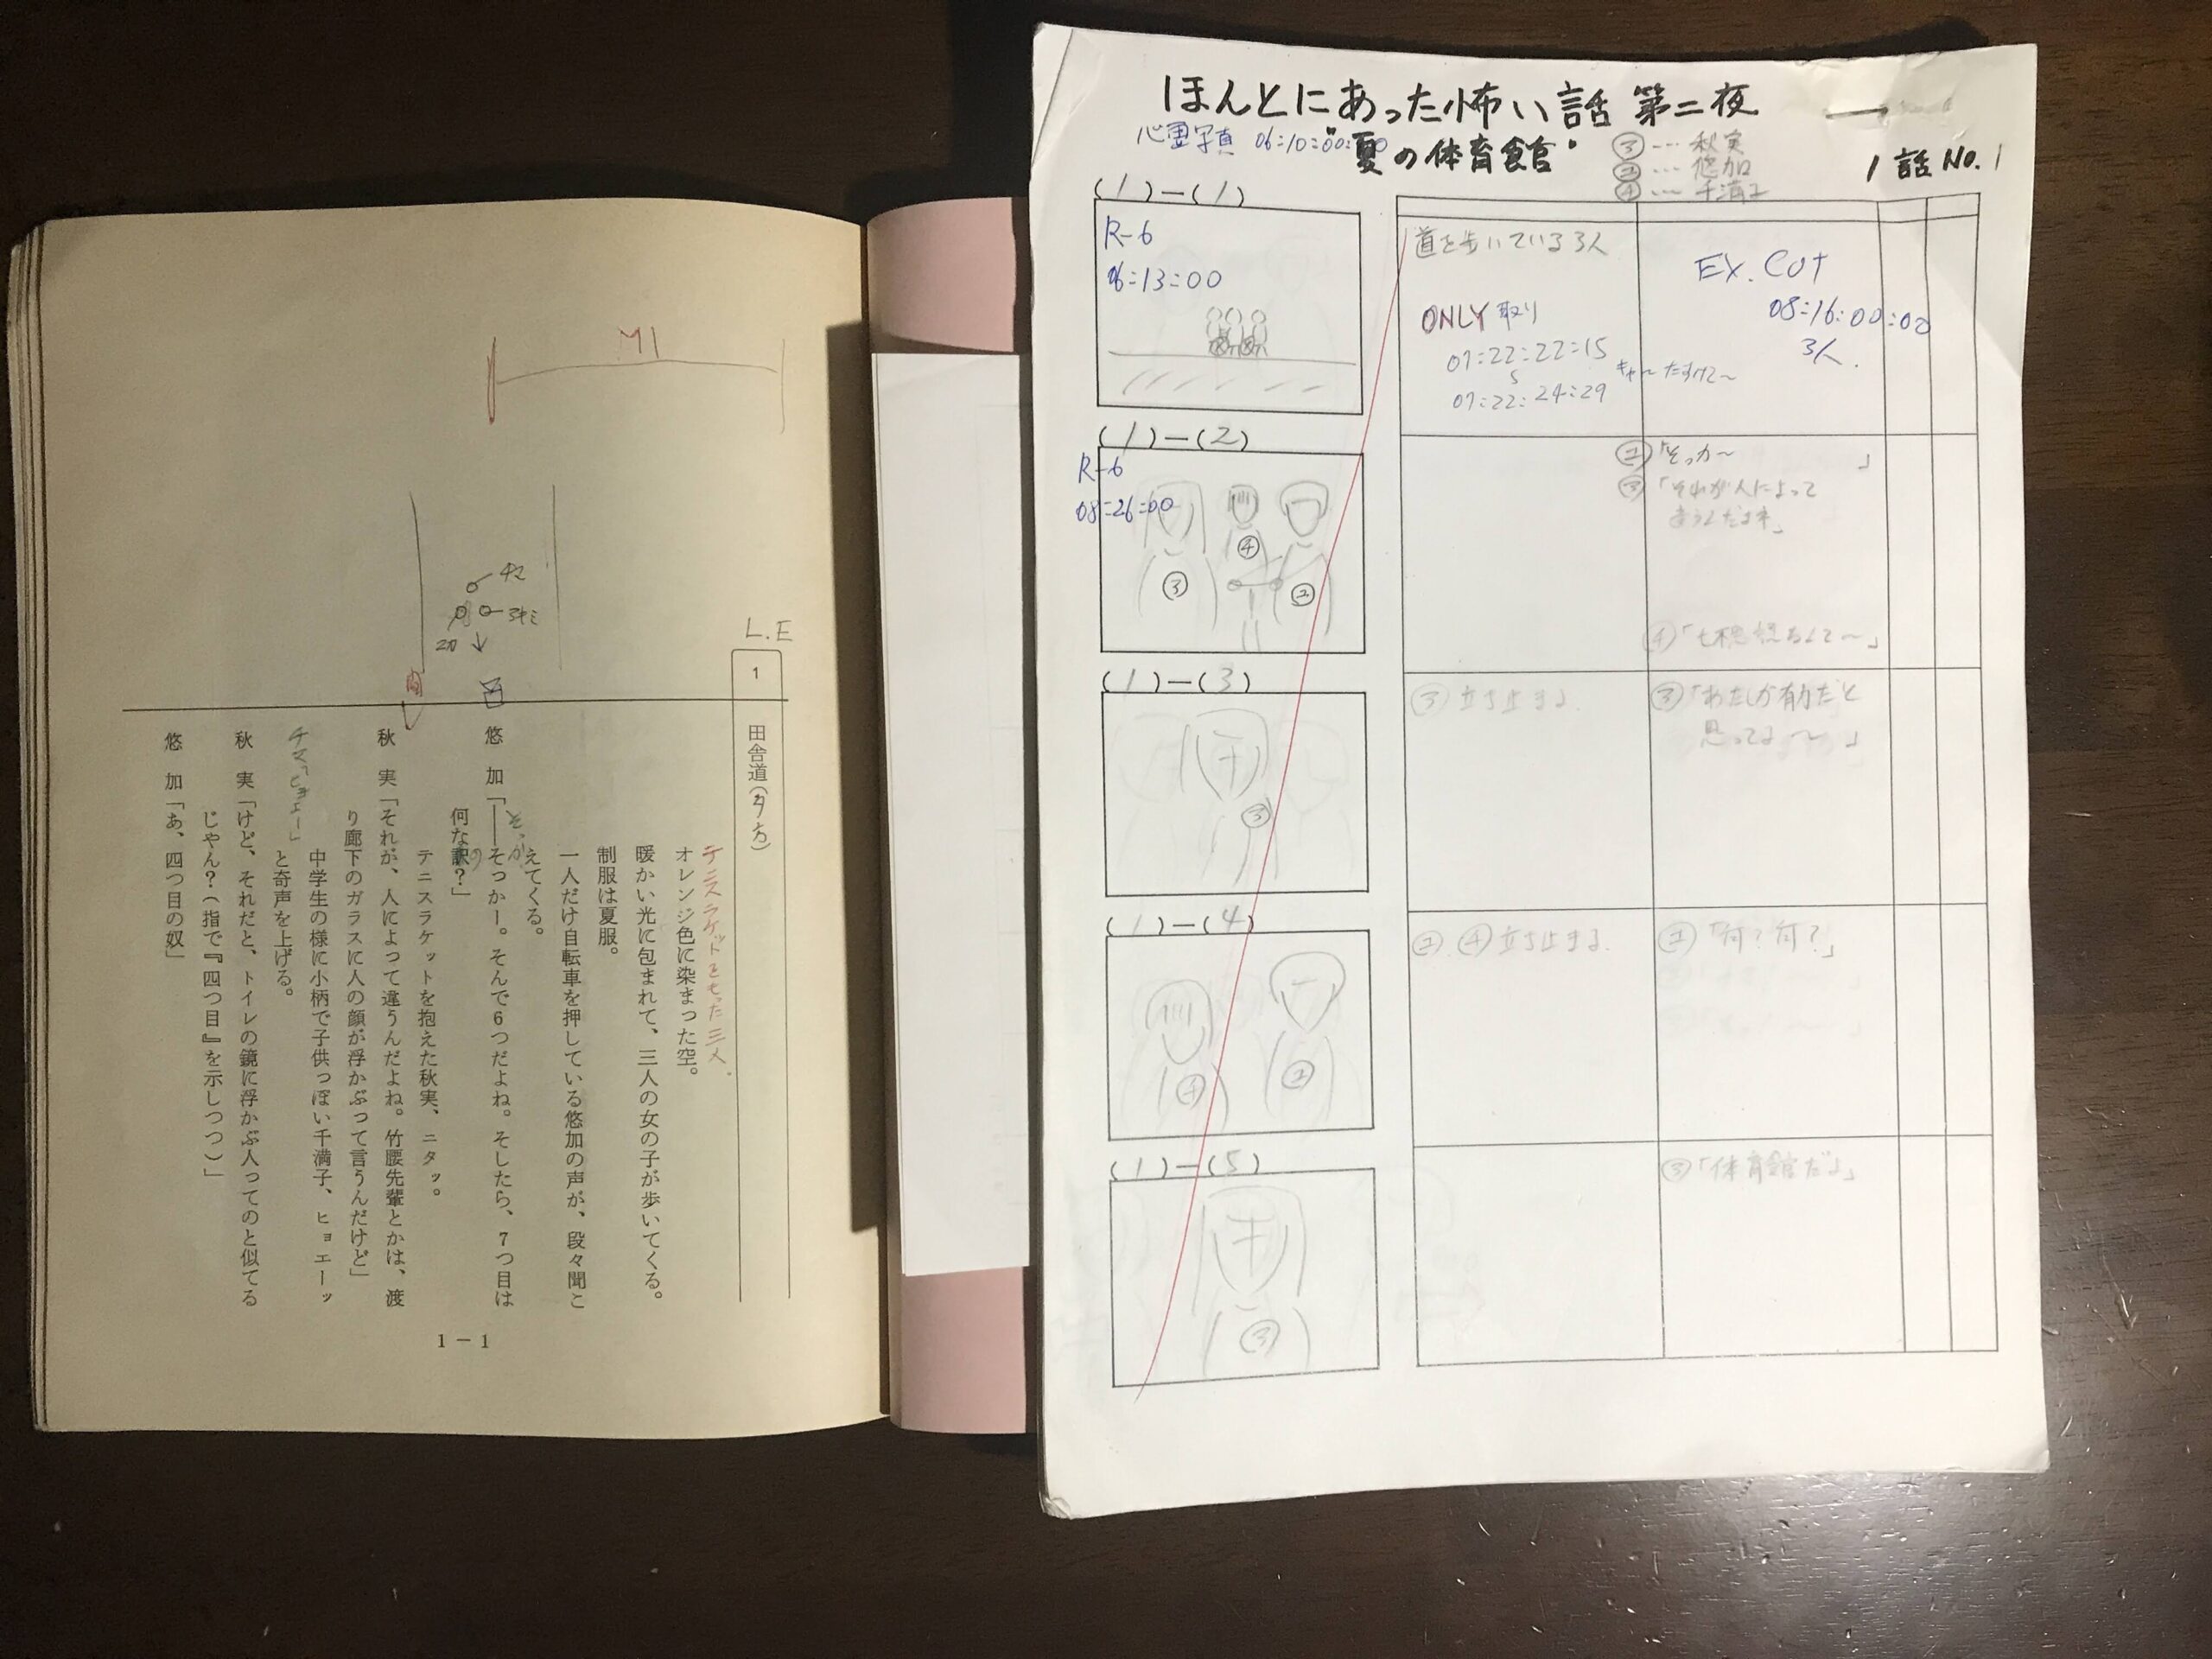 L.E
M1
1
田舎道(夕方)
テニスラケットをもった三人.
オレンジ色に染まった空。
暖かい光に包まれて、三人の女の子が歩いてくる。
制服は夏服。
一人だけ自転車を押している悠加の声が、段々聞こ
えてくる。
そっか
悠　加「――そっかー。そんで6つだよね。そしたら、7つ目は
何な訳?」
の
テニスラケットを抱えた秋実、ニタッ。
秋　実「それが、人によって違うんだよね。竹腰先輩とかは、渡
り廊下のガラスに人の顔が浮かぶって言うんだけど」
中学生の様に小柄で子供っぽい千満子、ヒョエーッ
と奇声を上げる。
秋　実「けど、それだと、トイレの鏡に浮かぶ人ってのと似てる
じゃん?(指で『四つ目』を示しつつ)」
悠　加「あ、四つ目の奴」
1－1
ほんとにあった怖い話 第二夜
心霊写真 06:10:00:00
"夏の体育館"
③--- 秋実
②--- 悠加
④--- 千満子
1話 No.1
(1)―(1)
R-6
06:13:00
道を歩いている3人
ONLY 取り
07:22:22:15
07:22:24:29
キャーたすけて〜
EX. CUT
08:16:00:00
3人.
(1)―(2)
R-6
08:26:00
③
④
②
②「そっか〜　」
③「それが人によって
違うんだよね」
(1)―(3)
③
③立ち止まる.
③「わたしが有力だと
思ってるー〜」
(1)―(4)
④
②
②.④立ち止まる.
②「何?何?」
(1)―(5)
③
③「体育館だよ」